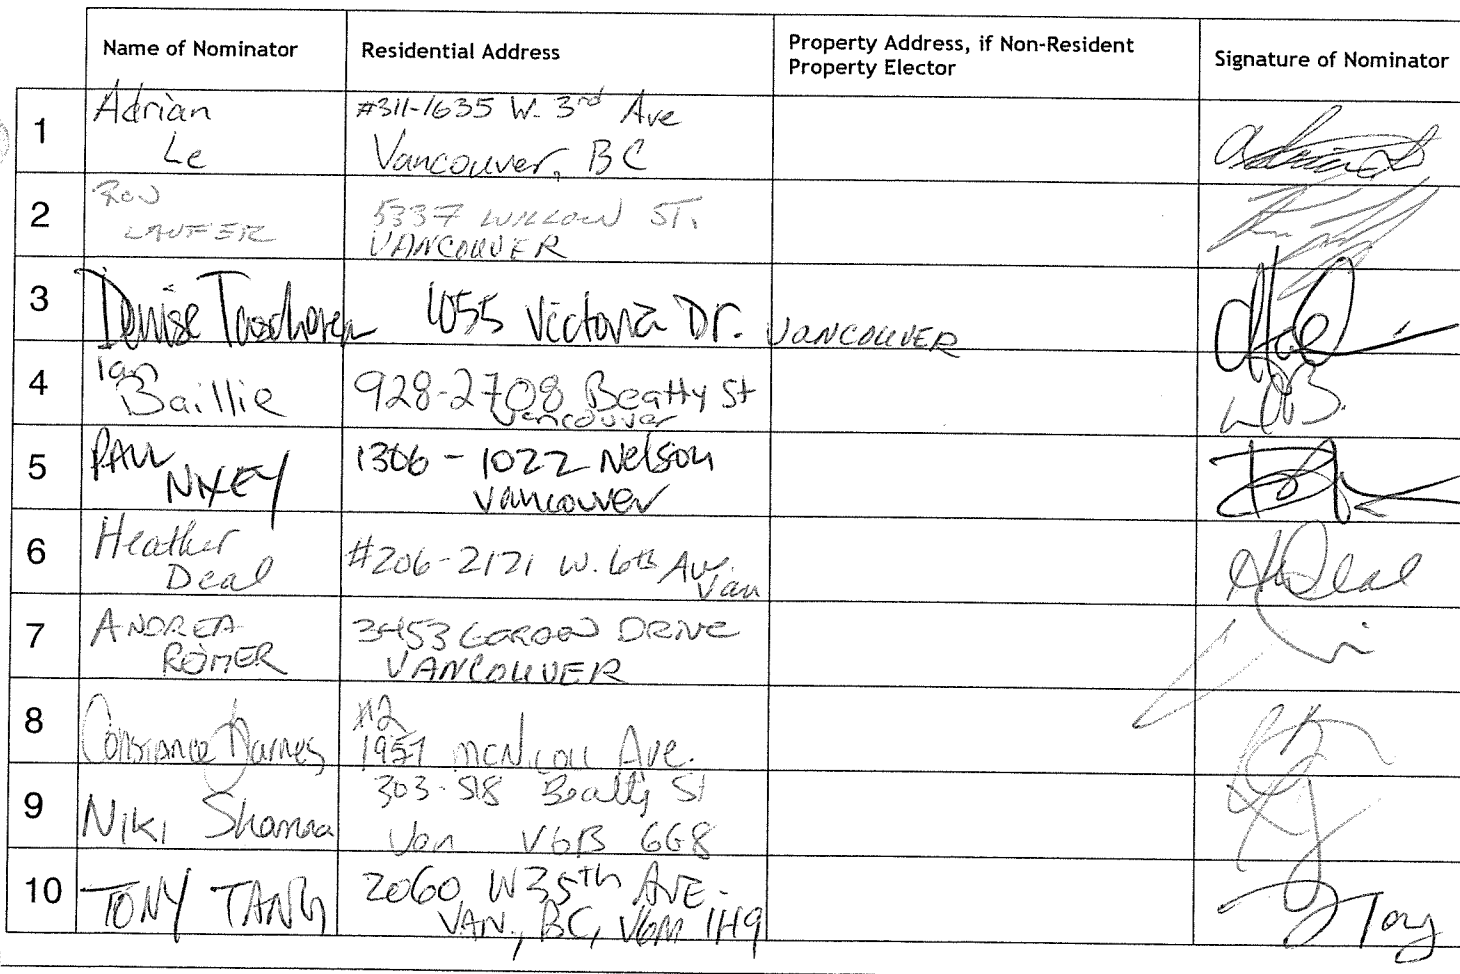 Name of Nominator
Residential Address
Property Address, if Non-Resident
Property Elector
Signature of Nominator
1
Adrian
Le
#311-1635 W. 3rd Ave
Vancouver, BC
2
RON
LAUFER
5337 WILLOW ST.
VANCOUVER
3
Denise Taschereau
1055 Victoria Dr. VANCOUVER
4
Ian
Baillie
928-2708 Beatty St
Vancouver
5
PAUL
NIXEY
1306 - 1022 Nelson
Vancouver
6
Heather
Deal
#206-2121 W. 6th Av.
Van
HDeal
7
ANDREA
REIMER
3453 GORDON DRIVE
VANCOUVER
8
Constance Barnes
#2
1957 McNicoll Ave.
9
Niki Sharma
303-518 Beatty St
Van V6B 6G8
10
TONY TANG
2060 W 35th AVE.
VAN., BC, V6M 1H9
Tony